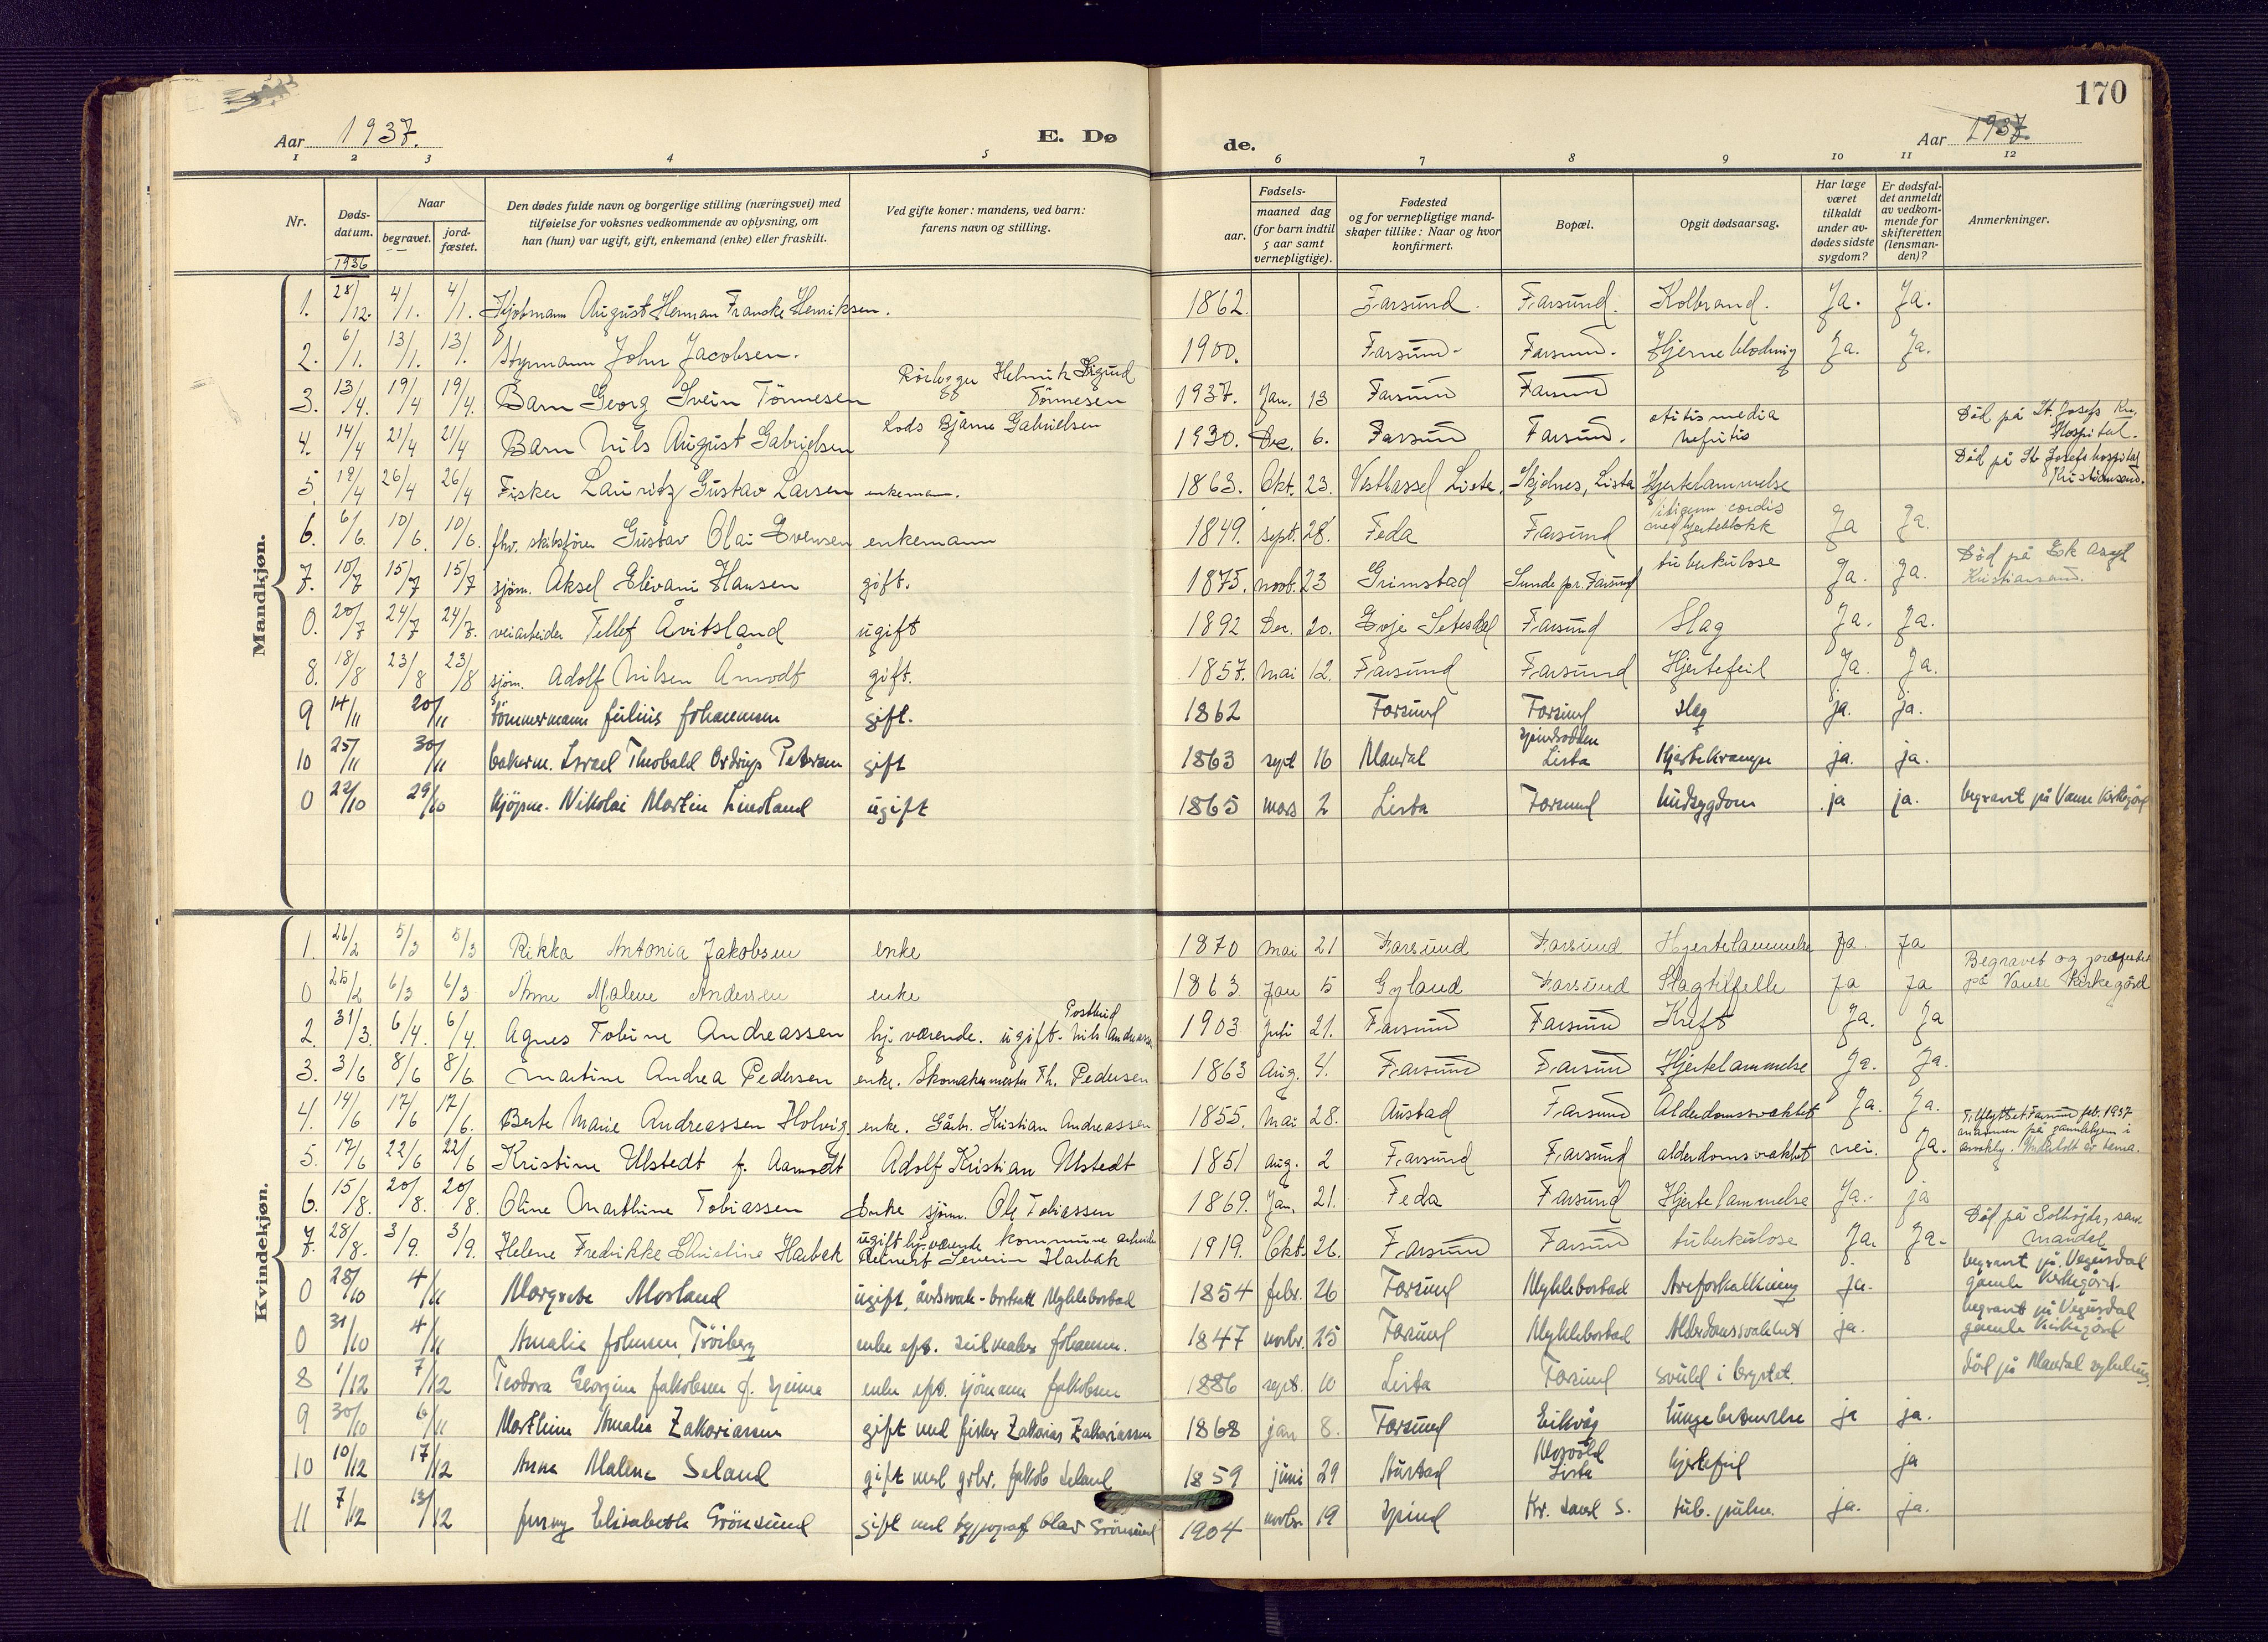 170
Aar 1937. E. Dø de. Aar 1937.
1 2 3 4 5 6 7 8 9 10 11 12
Nr. Døds-datum. Naar begravet. jord-fæstet. Den dødes fulde navn og borgerlige stilling (næringsvei) med tilføielse for voksnes vedkommende av oplysning, om han (hun) var ugift, gift, enkemand (enke) eller fraskilt. Ved gifte koner: mandens, ved barn: farens navn og stilling. Fødsels- aar. maaned dag (for barn indtil 5 aar samt vernepligtige). Fødested og for vernepligtige mand-skaper tillike: Naar og hvor konfirmert. Bopæl. Opgit dødsaarsag. Har læge været tilkaldt under av-dødes sidste sygdom? Er dødsfal-det anmeldt av vedkom-mende for skifteretten (lensman-den)? Anmerkninger.
1936
Mandkjøn.
1. 28/12. 4/1. 4/1. Kjøbmann August Herman Francke Henriksen. 1862. Farsund. Farsund. Kolbrand. Ja. Ja.
2. 6/1. 13/1. 13/1. Styrmann John Jacobsen. 1900. Farsund. Farsund. Hjerneblødning Ja. Ja.
3. 13/4. 19/4 19/4. Barn Georg Svein Tönnesen Rörlegger Helmik Sigurd Tönnesen 1937. Jan. 13 Farsund Farsund
4. 14/4 21/4 21/4 Barn Nils August Gabrielsen Lods Bjarne Gabrielsen 1930. Dec. 6. Farsund Farsund. otitis media nefritis Död på St. Josefs Kr. Hospital.
5. 19/4 26/4 26/4 Fisker Lauritz Gustav Larsen enkeman. 1863. Okt. 23. Vesthassel Lista. Skjolnes, Lista Hjertelammelse Död på St. Josefs hospital Kristiansand.
6. 6/6. 10/6. 10/6. fhv. skibsfører Gustav Olai Evensen enkemann 1849. sept. 28. Feda Farsund cordis med hjerteblokk Ja Ja.
7. 10/7 15/7 15/7 sjøm. Aksel Elevani Hansen gift. 1875. novb. 23 Grimstad Lunde pr. Farsund tuberkulose Ja. Ja. Død på Ek Asyl Kristiansand.
0. 20/7 24/7 24/7. veiarbeider Tellef Åvitsland ugift 1892 Dec. 20. Evje Setesdal Farsund Slag Ja. Ja.
8. 18/8 23/8 23/8 sjøm. Adolf Nilsen Åmodt gift. 1857. Mai 12. Farsund Farsund Hjertefeil Ja. Ja.
9 14/11 20/11 tömmermann Julius Johannesen gift. 1862 Farsund Farsund slag ja. ja.
10 25/11 30/11 bakerm. Israel Theobald Ordrup Petersen gift 1863 sept 16 Mandal Spindsodden Lista Hjertekrampe ja. ja.
0 22/10 29/10 kjöpm. Nikolai Martin Lindland ugift 1865 mars 2 Lista Farsund hudsygdom ja ja. begravet på Vanse Kirkegård
Kvindekjøn.
1. 26/2 5/3 5/3 Rikka Antonia Jakobsen enke 1870 mai 21 Farsund Farsund Hjertelammelse Ja Ja
0 25/2 6/3 6/3 Anne Malene Andersen enke 1863 Jan 5 Gyland Farsund Slagtilfelle Ja Ja Begravet og jordfæstet på Vanse Kirkegård
2. 31/3. 6/4. 6/4. Agnes Tobine Andreassen hj. værende. ugift. Postbud Nils Andreassen 1903 Juli 21. Farsund Farsund Kreft Ja. Ja
3. 3/6 8/6 8/6. Martine Andrea Pedersen enke. Skomakermester Th. Pedersen 1863 Aug. 4. Farsund Farsund Hjertelammelse Ja. Ja.
4. 14/6 17/6 17/6. Berte Marie Andreassen Holvig enke. Gårbr. Kristian Andreassen 1855. Mai 28. Austad Farsund Alderdomssvakhet Ja. Ja.
5. 17/6 22/6 22/6 Kristine Ulstedt f. Aamodt Adolf Kristian Ulstedt 1851 aug. 2 Farsund Farsund alderdomssvakhet nei. Ja. Tilflyttet Farsund febr. 1937
6. 15/8. 20/8. 20/8. Oline Marthine Tobiassen Enke sjöm. Ole Tobiassen 1869. Jan. 21. Feda Farsund Hjertelammelse Ja. ja
7. 28/8. 3/9. 3/9. Helene Fredrikke Christine Harbak ugift hj. værende kommune arbeider Reinert Severin Harbak 1919. Okt. 26. Farsund Farsund tuberkulose Ja. Ja. Død på Solhøgda, san. Mandal
0 28/10 4/11 Margrete Mosland ugift, åndsvak - bortsatt Myklebostad 1854 febr. 26 Farsund Myklebostad Areforkalkning ja. begravet på Vegusdal gamle Kirkegård
0 31/10 4/11 Amalie Johnsen, Tröiberg enke eft. seilmaker Johannsen. 1847 novbr. 25 Farsund Myklebostad Alderdomssvakhet ja. begravet på Vegusdal gamle Kirkegård
8 1/12 7/12 Teodora Georgine Jakobsen f. enke eft. sjömann Jakobsen 1886 sept. 10 Lista Farsund svulst i brystet. död på Mandal sykehus.
9 30/10 6/11 Marthine Amalie Zakariassen gift med fisker Zakarias Zakariassen 1868 jan 8. Farsund Eikvåg lungebetennelse ja ja.
10 10/12 17/12 Anna Malene Seland gift med grbr. Jakob Seland 1859 juni 29 Austad Lista hjertefeil ja
11 7/12 13/12 Jenny Elisabeth Grönsund gift med typograf Olav Grönsund 1904 novbr. 19 Spind Kr. sand S. tub. pulm. ja. ja.